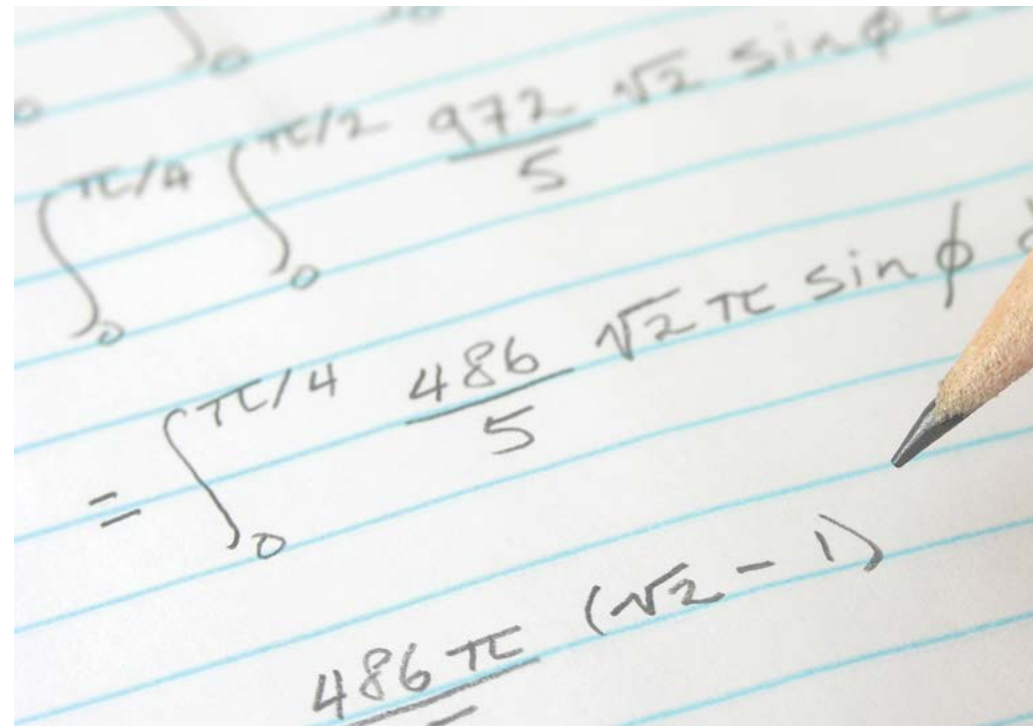 ∫₀^{π/4} ∫₀^{π/2} 972/5 √2 sin φ
= ∫₀^{π/4} 486/5 √2 π sin φ d
486 π (√2 - 1)